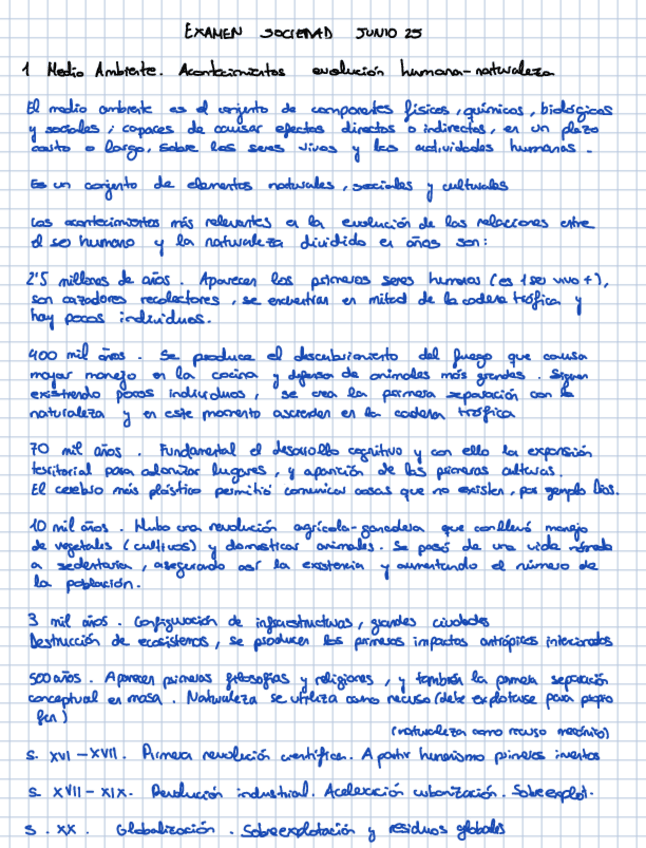 EXAMEN SOCIEDAD JUNIO 25
1 Medio Ambiente. Acontecimientos evolución humana-naturaleza
El medio ambiente es el conjunto de componentes físicos, químicos, biológicos
y sociales, capaces de causar efectos directos o indirectos, en un plazo
corto o largo, sobre los seres vivos y las actividades humanas.
Es un conjunto de elementos naturales, sociales y culturales
Los acontecimientos más relevantes en la evolución de las relaciones entre
el ser humano y la naturaleza dividido en años son:
2'5 millones de años. Aparecen los primeros seres humanos (es 1 ser vivo +),
son cazadores recolectores, se encuentran en mitad de la cadena trófica y
hay pocos individuos.
400 mil años. Se produce el descubrimiento del fuego que causa
mayor manejo en la cocina y defensa de animales más grandes. Siguen
existiendo pocos individuos, se crea la primera separación con la
naturaleza y en este momento ascienden en la cadena trófica
70 mil años. Fundamental el desarrollo cognitivo y con ello la expansión
territorial para colonizar lugares, y aparición de las primeras culturas.
El cerebro más plástico permitió comunicar cosas que no existen, por ejemplo Dios.
10 mil años. Hubo una revolución agrícola-ganadera que conllevó manejo
de vegetales (cultivos) y domesticar animales. Se pasó de una vida nómada
a sedentaria, asegurando así la existencia y aumentando el número de
la población.
3 mil años. Configuración de infraestructuras, grandes ciudades
Destrucción de ecosistemas, se producen los primeros impactos antrópicos
500 años. Aparecen primeras filosofías y religiones, y también la primera separación
conceptual en masa. Naturaleza se utiliza como recurso (debe explotarse para propio
fin)
(naturaleza como recurso mecánico)
S. XVI - XVII. Primera revolución científica. A partir humanismo primeros inventos
S. XVII - XIX. Revolución industrial. Aceleración urbanización. Sobreexplot.
S. XX. Globalización. Sobreexplotación y residuos globales